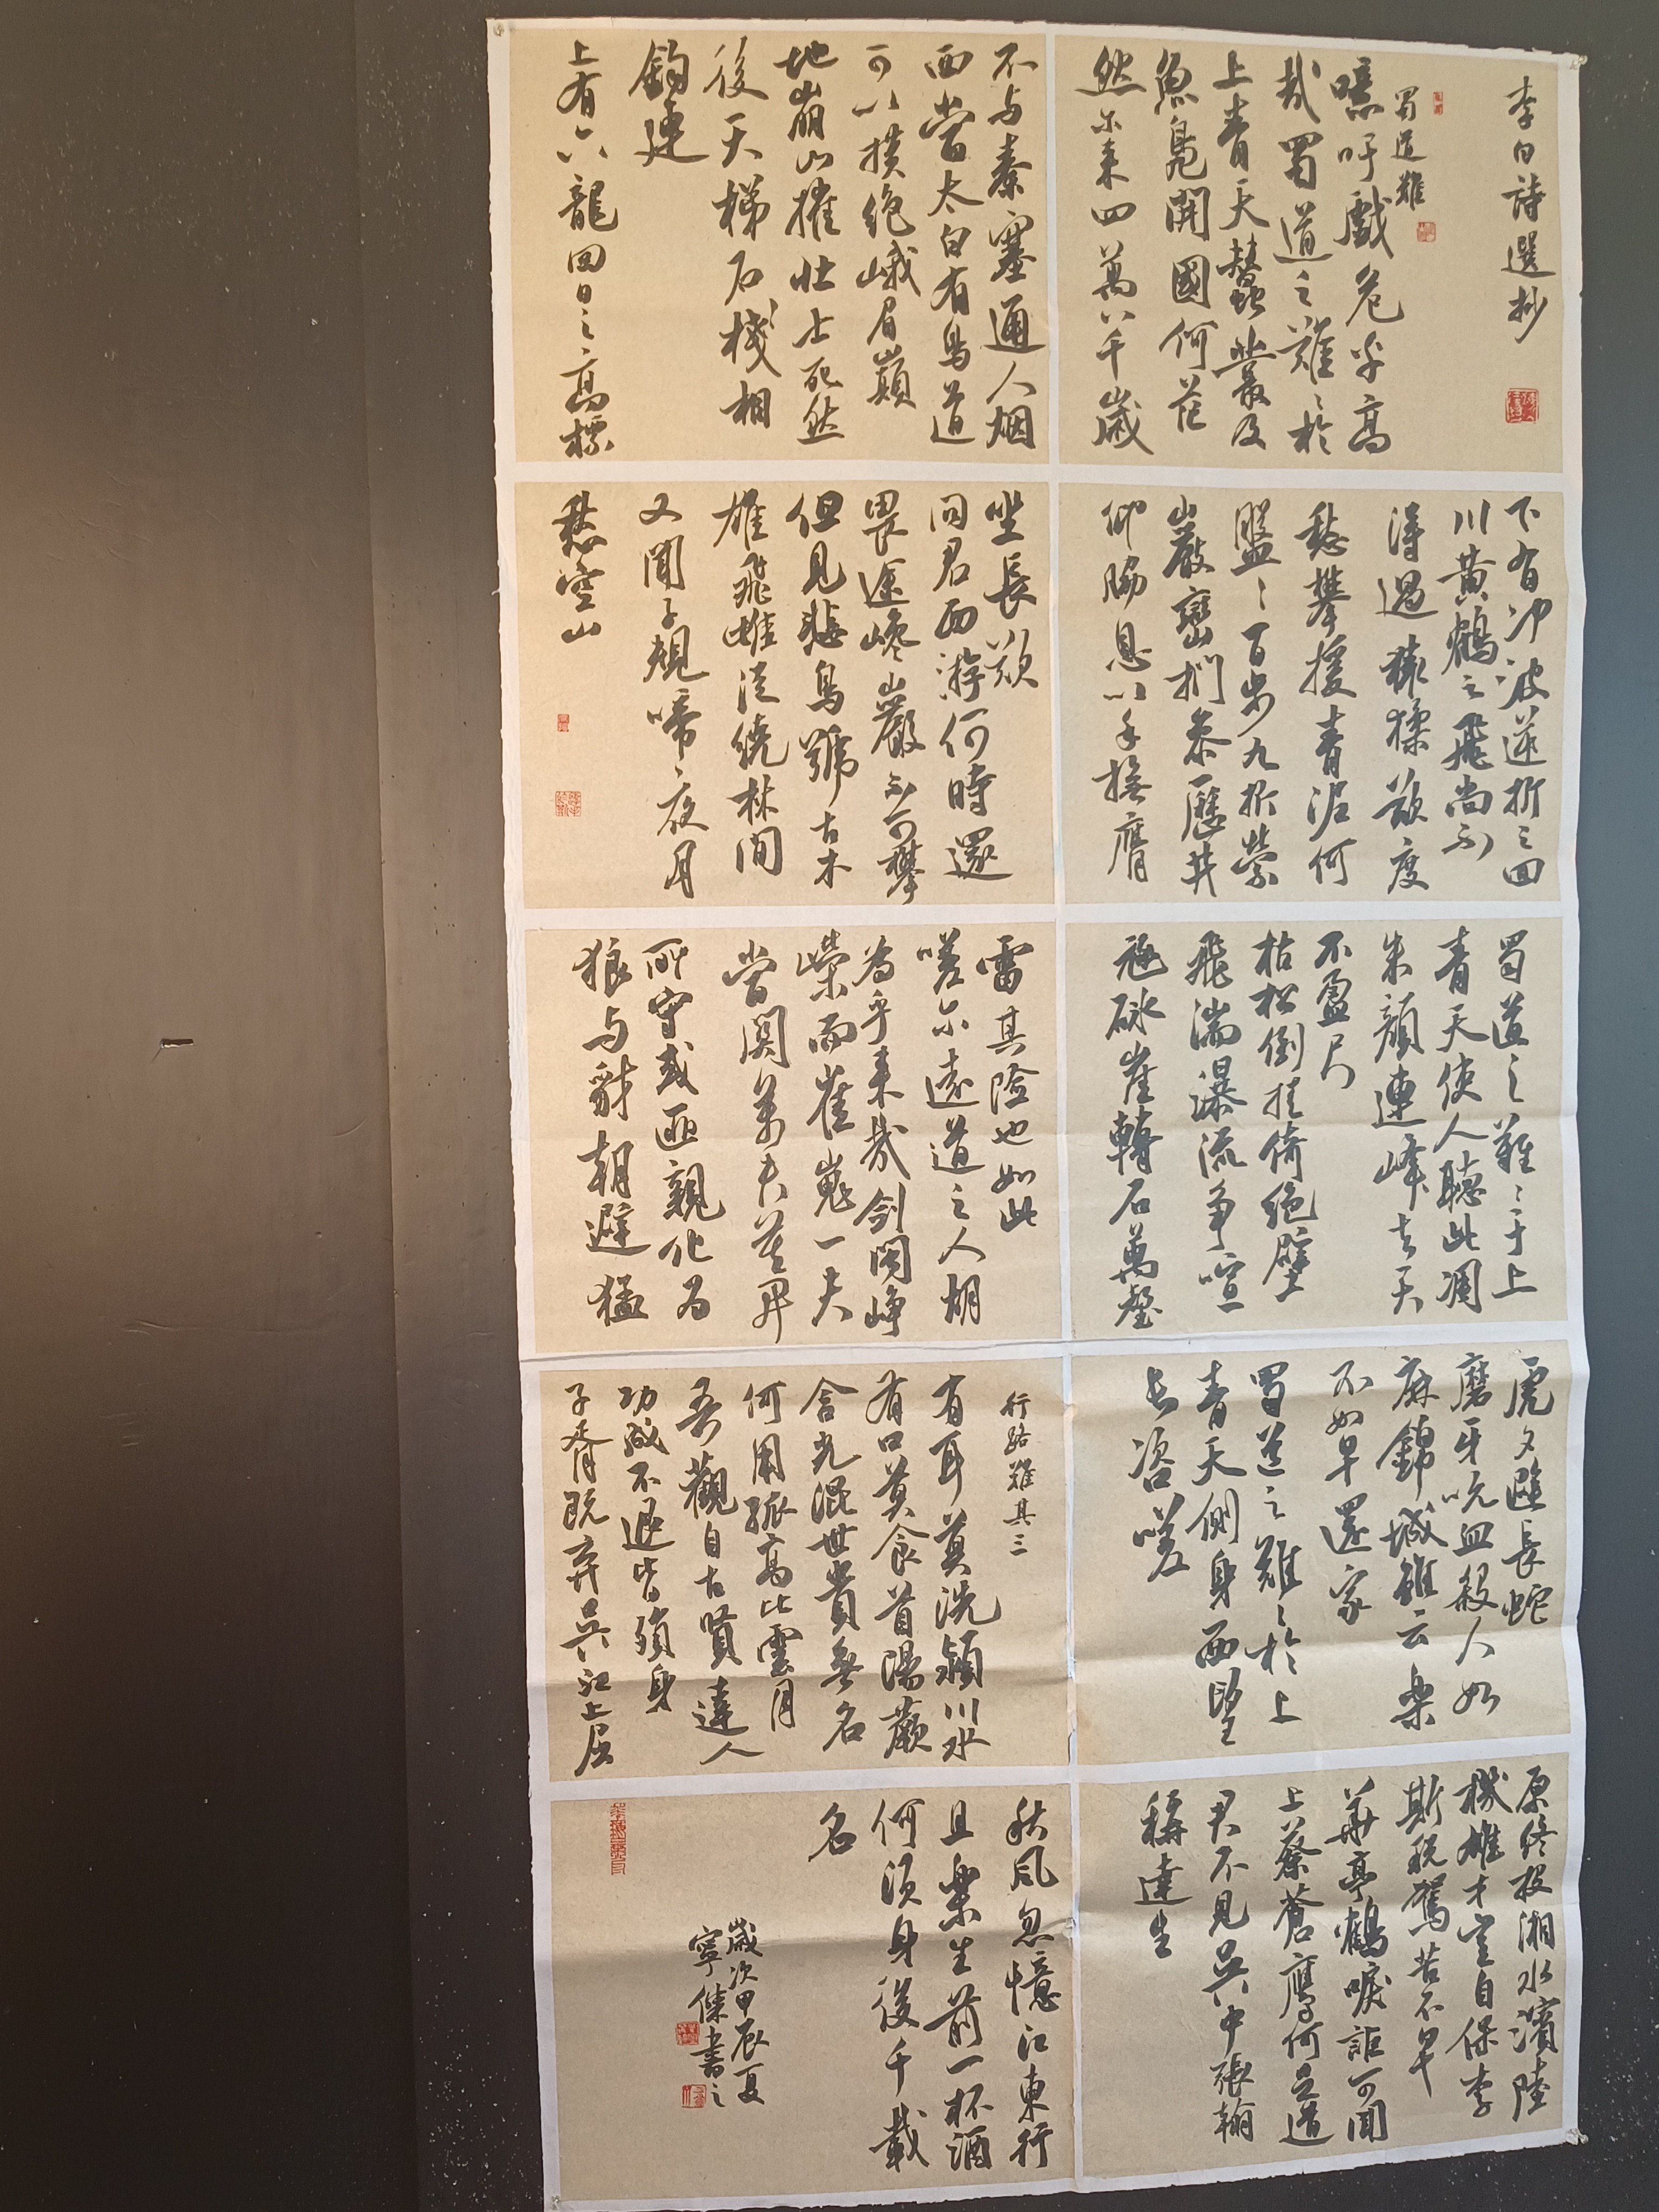 李白詩選抄
蜀道難
噫吁戲危乎高
哉蜀道之難〻於
上青天蠶叢及
魚鳧開國何茫
然尔来四萬八千歲
不与秦塞通人烟
西當太白有鳥道
可以横绝峨眉巔
地崩山摧壮士死然
後天梯石棧相
鈎連
上有六龍回日之高標
下有冲波逆折之回
川黄鶴之飛尚不
得過猿猱欲度
愁攀援青泥何
盤〻百步九折縈
巖巒捫参歷井
仰脇息以手撫膺
坐長歎
问君西游何時還
畏途巉巖不可攀
但見悲鳥號古木
雄飛雌從繞林间
又聞子規啼〻夜月
愁空山
蜀道之難〻于上
青天使人聽此凋
朱顏連峰去天
不盈尺
枯松倒挂倚绝壁
飛湍瀑流争喧
豗砯崖轉石萬壑
雷其险也如此
嗟尔遠道之人胡
為乎来哉剑阁峥
嶸而崔嵬一夫
當関萬夫莫開
所守或匪親化为
狼与豺朝避猛
虎夕避長蛇
磨牙吮血殺人如
麻錦城雖云樂
不如早還家
蜀道之難〻於上
青天側身西望
长咨嗟
行路難其三
有耳莫洗潁川水
有口莫食首陽蕨
含光混世貴無名
何用孤高比雲月
吾觀自古賢達人
功成不退皆殞身
子胥既弃吴江上屈
原终投湘水濱陸
機雄才豈自保李
斯税駕苦不早
華亭鶴唳詎可聞
上蔡蒼鷹何足道
君不見吴中張翰
稱達生
秋风忽憶江東行
且樂生前一杯酒
何須身後千載
名
歲次甲辰夏
寧傑書之